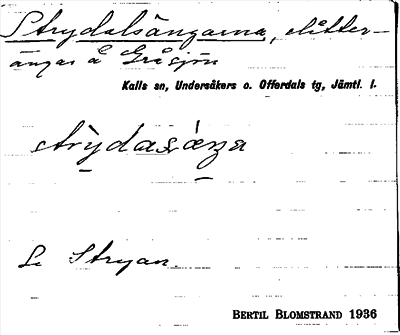 Strydalsängarna, slåtter-
ängar å Gråsjön
Kalls sn, Undersåkers o. Offerdals tg, Jämtl. l.
strỳdasˌàŋa
Se Stryan.
BERTIL BLOMSTRAND 1936